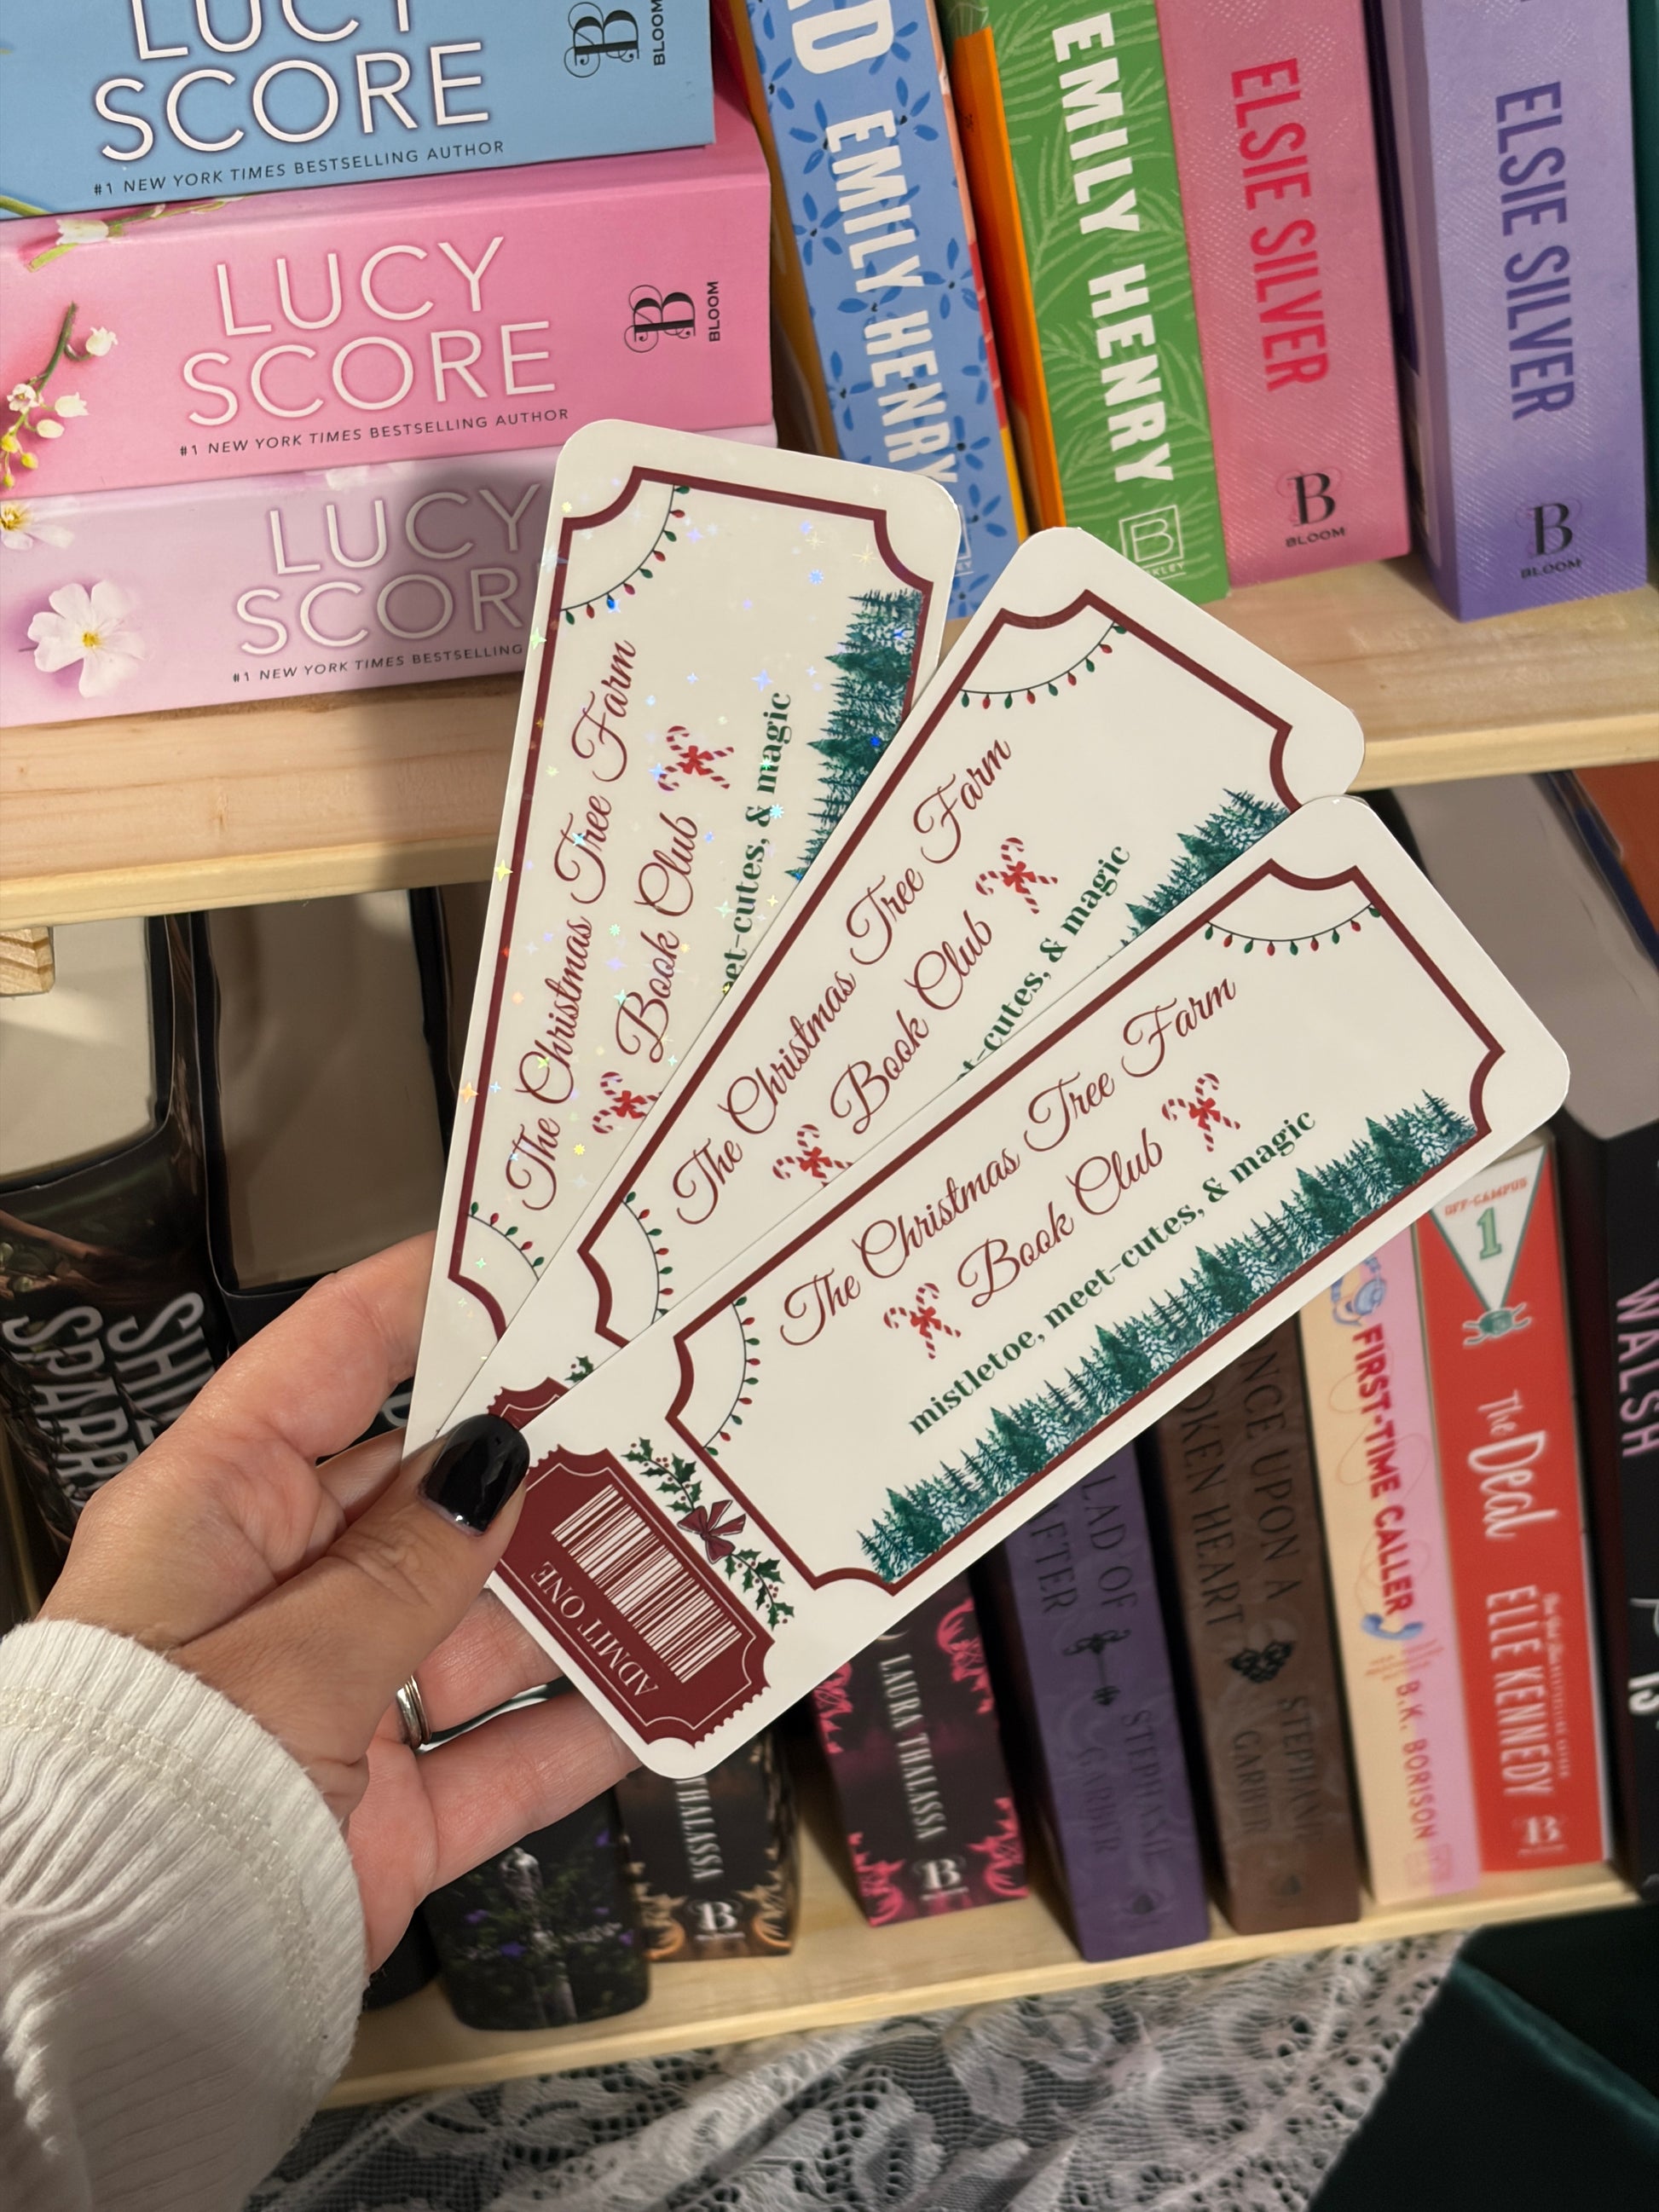 LUCY
SCORE
#1 NEW YORK TIMES BESTSELLING AUTHOR
B
BLOOM
LUCY
SCORE
#1 NEW YORK TIMES BESTSELLING AUTHOR
B
BLOOM
LUCY
SCOR
#1 NEW YORK TIMES BESTSELLING
EMILY HENRY
EMILY HENRY
B
ELSIE SILVER
B
BLOOM
ELSIE SILVER
B
BLOOM
The Christmas Tree Farm
Book Club
eet-cutes, & magic
The Christmas Tree Farm
Book Club
t-cutes, & magic
The Christmas Tree Farm
Book Club
mistletoe, meet-cutes, & magic
ADMIT ONE
THALASSA
B
LAURA THALASSA
B
LAD OF
FTER
STEPHANIE
GARBER
NCE UPON A
OKEN HEART
STEPHANIE
GARBER
FIRST-TIME CALLER
B.K. BORISON
OFF-CAMPUS
1
The Deal
ELLE KENNEDY
B
WALSH